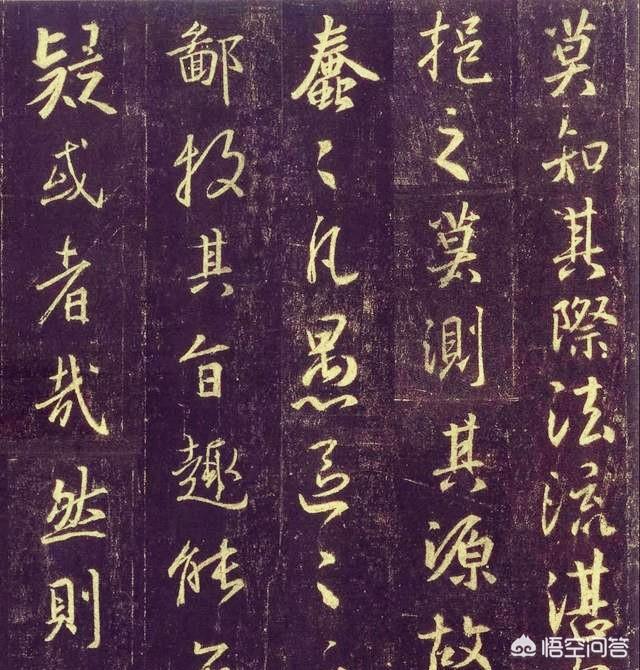 莫知其際法流湛
挹之莫測其源故
蠢々凡愚區々
鄙投其旨趣能
疑或者哉然則
悟空问答